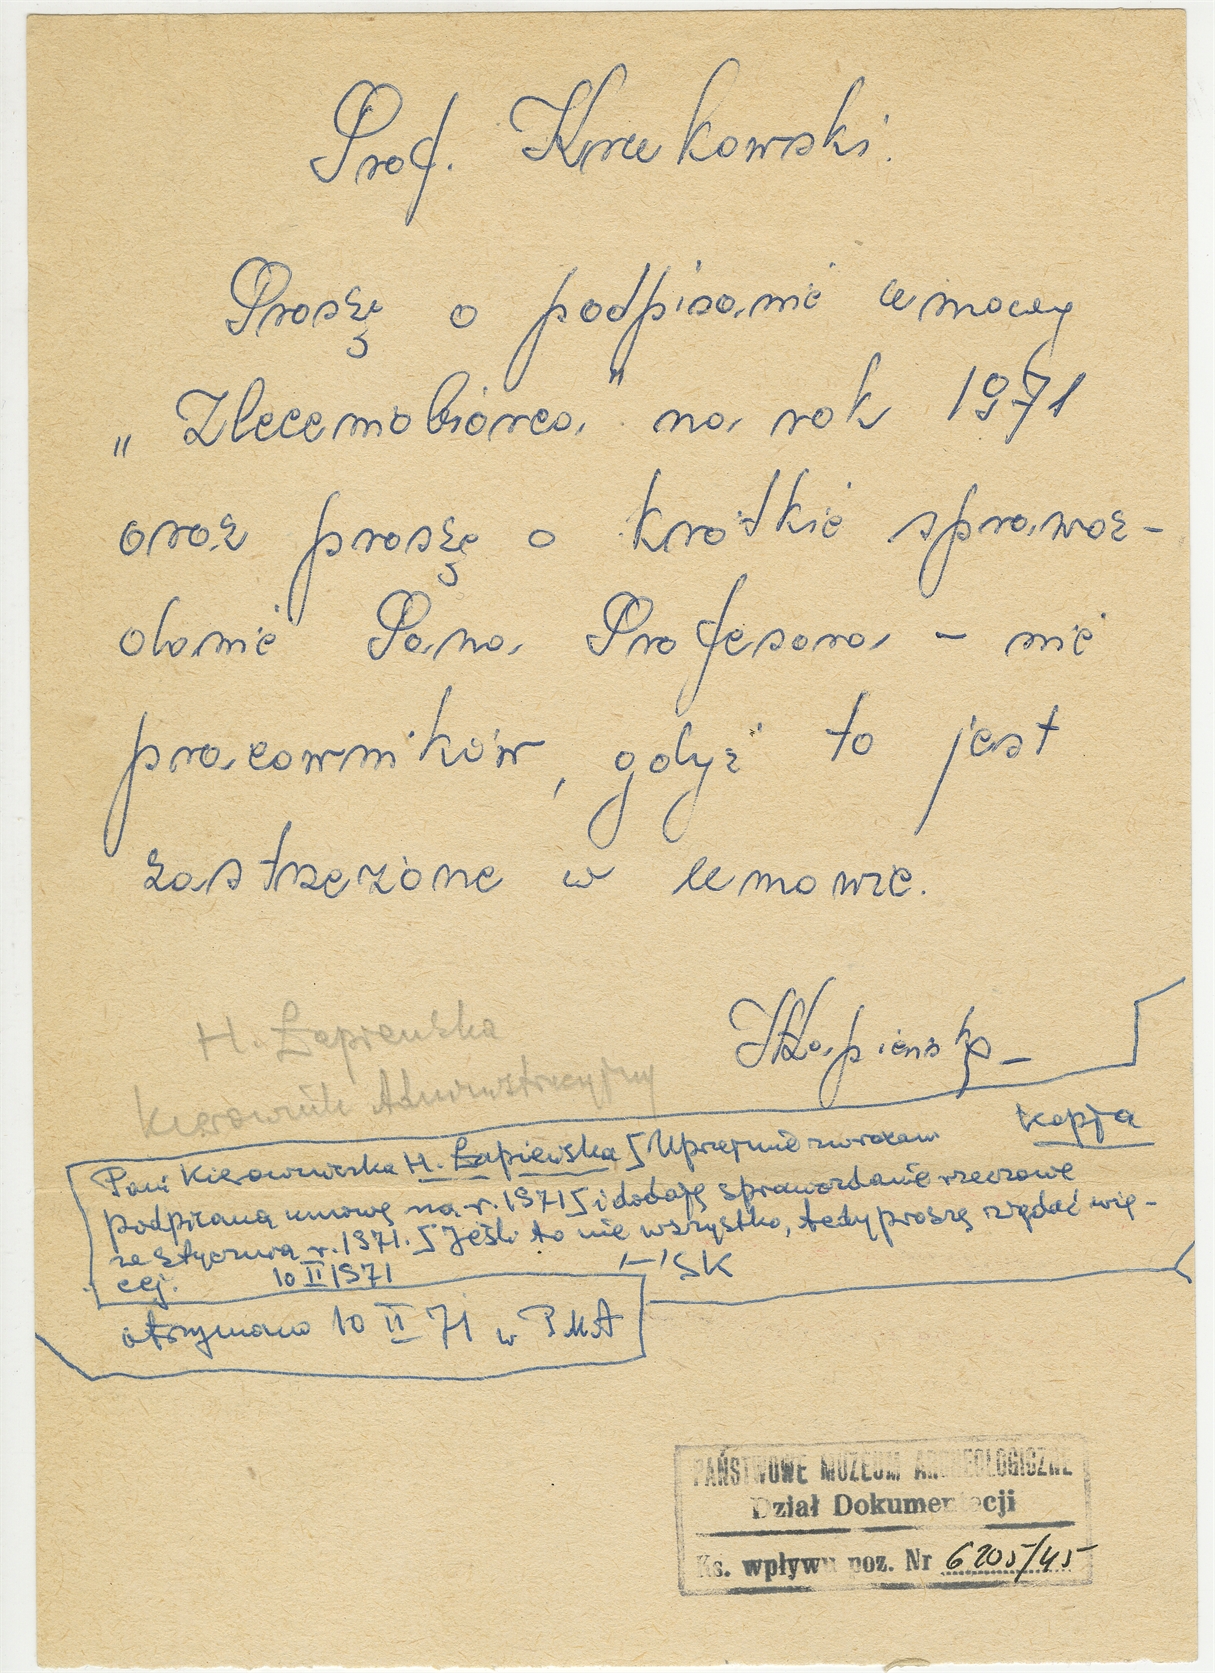 Prof. Krukowski.
Proszę o podpisanie umowy
„Zleceniobiorca" na rok 1971
oraz proszę o krótkie sprawoz-
danie Pana Profesora - nie
pracowników, gdyż to jest
zastrzeżone w umowie.
HŁapieńska
H. Łapieńska
Kierownik Administracyjny
kopja
Pani Kierowniczka H. Łapiewska ʃ Uprzejmie zwracam
podpisaną umowę na r. 1971 ʃ i dodaję sprawozdanie rzeczowe
ze stycznia r. 1971. ʃ Jeśli to nie wszystko, tedy proszę żądać wię-
cej. 10 II 1971 /-/ SK
otrzymano 10 II 71 w PMA
PAŃSTWOWE MUZEUM ARCHEOLOGICZNE
Dział Dokumentacji
Ks. wpływu poz. Nr 6205/45